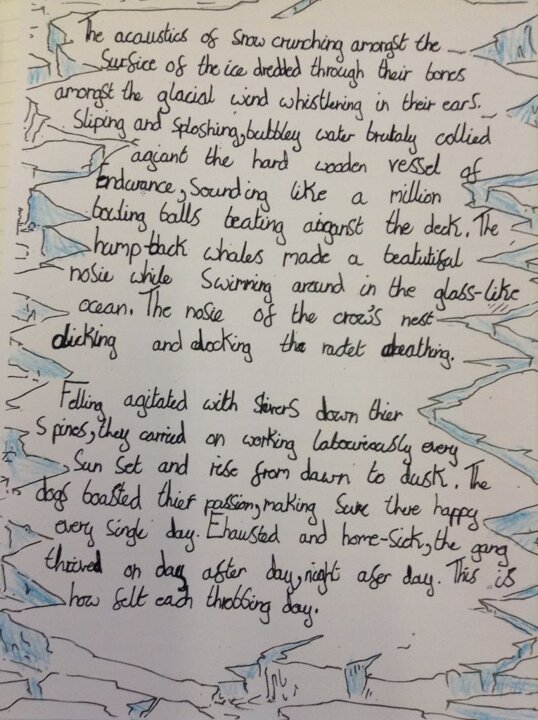 The acaustics of snow crunching amongst the
Surfice of the ice dredded through their bones
amongst the glacial wind whistlering in their ears.
Sliping and sploshing, bubbley water brutaly collied
agianst the hard wooden vessel of
Endurance, Sounding like a million
bowling balls beating against the deck. The
hump-back whales made a beatutifal
nosie while Swimming around in the glass-like
ocean. The nosie of the crow's nest
clicking and clocking the
Felling agitated with Shivers down thier
Spines, they carried on working laboureously every
Sun Set and rise from dawn to dusk. The
dogs boasted thier passion, making Sure there happy
every Single day. Exhausted and home-Sick, the gang
thrived on day after day, night afer day. This is
how felt each throbbing day.